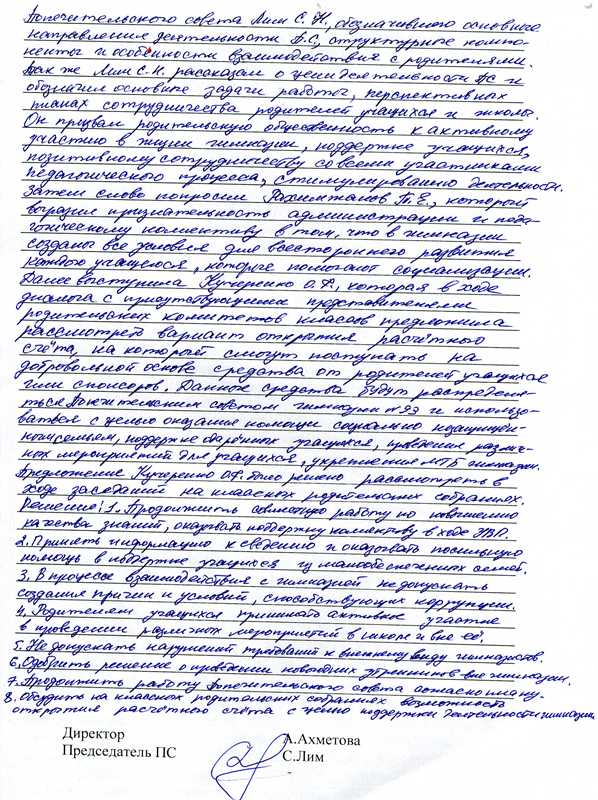 Попечительского совета Лим С.Н., обозначившего основные
направления деятельности П.С., структурные компо-
ненты и особенности взаимодействия с родителями.
Так же Лим С.Н. рассказал о цели деятельности ПС и
обозначил основные задачи работы, перспективных
планах сотрудничества родителей учащихся и школы.
Он призвал родительскую общественность к активному
участию в жизни гимназии, поддержке учащихся,
позитивному сотрудничеству со всеми участниками
педагогического процесса, стимулированию деятельности.
Затем слово попросил Рахимжанов Т.Е., который
выразил признательность администрации и педа-
гогическому коллективу в том, что в гимназии
созданы все условия для всестороннего развития
каждого учащегося, которые помогают социализации.
Далее выступила Кучеренко О.Ф., которая в ходе
диалога с присутствующими представителями
родительских комитетов классов предложила
рассмотреть вариант открытия расчётного
счёта, на который смогут поступать на
добровольной основе средства от родителей учащихся
или спонсоров. Данные средства будут распределя-
ться Попечительским советом гимназии №93 и использо-
ваться с целью оказания помощи социально незащищён-
ным семьям, поддержке одарённых учащихся, проведения различ-
ных мероприятий для учащихся, укрепления МТБ гимназии.
Предложение Кучеренко О.Ф. было решено рассмотреть в
ходе заседаний на классных родительских собраниях.
Решение: 1. Продолжить совместную работу по повышению
качества знаний, оказывать поддержку коллективу в ходе УВП.
2. Принять информацию к сведению и оказывать посильную
помощь в поддержке учащихся из малообеспеченных семей.
3. В процессе взаимодействия с гимназией не допускать
создания причин и условий, способствующих коррупции.
4. Родителям учащихся принимать активное участие
в проведении различных мероприятий в школе и вне её.
5. Не допускать нарушений требований к внешнему виду гимназистов.
6. Одобрить решение о проведении новогодних утренников вне гимназии.
7. Продолжить работу Попечительского совета согласно плану.
8. Обсудить на классных родительских собраниях возможность
открытия расчётного счёта с целью поддержки деятельности гимназии.
Директор А.Ахметова
Председатель ПС С.Лим